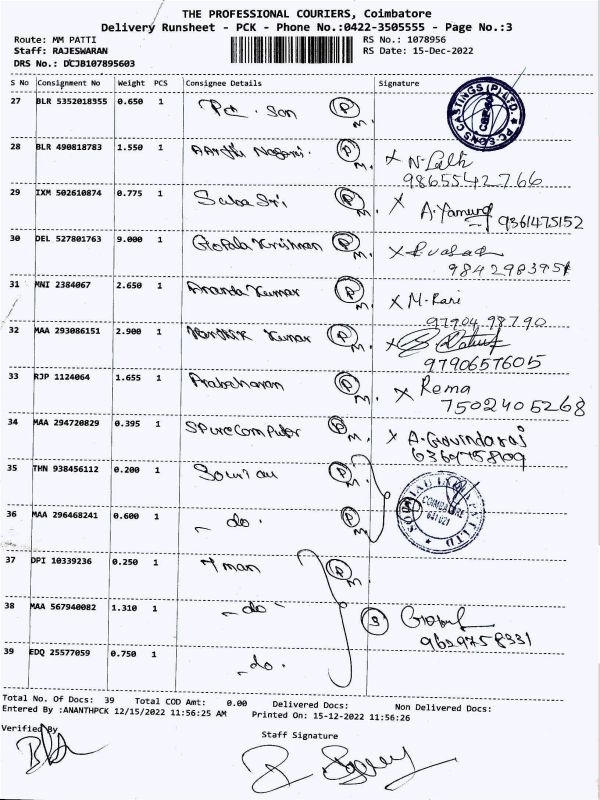 THE PROFESSIONAL COURIERS, Coimbatore
Delivery Runsheet - PCK - Phone No.:0422-3505555 - Page No.:3
Route: MM PATTI RS No.: 1078956
Staff: RAJESWARAN RS Date: 15-Dec-2022
DRS No.: DCJB107895603
S No Consignment No Weight PCS Consignee Details Signature
27 BLR 5352018355 0.650 1 P.C. Son P M. PC SONS CASTINGS (P) LTD.
28 BLR 490818783 1.550 1 P M. N.
9865542766
29 IXM 502610874 0.775 1 Saba Sri P M. X A. Yamuna 9361475152
30 DEL 527801763 9.000 1 Gopala Krishnan P M. X
9842983951
31 MNI 2384067 2.650 1 Ananda Kumar P M. X M. Rani
97904 98790
32 MAA 293086151 2.900 1 Karthik Kumar P M. X
9790657605
33 RJP 1124064 1.655 1 Prabaharan P M. X Rema
7502405268
34 MAA 294720829 0.395 1 SPure Computer P M. X A. Govindaraj
35 THN 938456112 0.200 1 P M.
36 MAA 296468241 0.600 1 - do. P M. COIMBATORE 641021
37 DPI 10339236 0.250 1 P M.
38 MAA 567940082 1.310 1 - do - 9
9629758331
39 EDQ 25577059 0.750 1 - do.
Total No. Of Docs: 39 Total COD Amt: 0.00 Delivered Docs: Non Delivered Docs:
Entered By :ANANTHPCK 12/15/2022 11:56:25 AM Printed On: 15-12-2022 11:56:26
Verified By Staff Signature